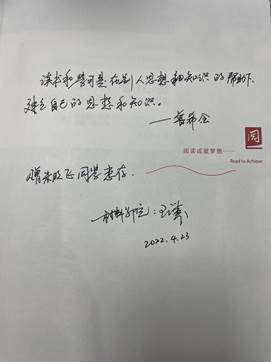 读书和学习是在别人思想和知识的帮助下,
建立自己的思想和知识。
——普希金
阅
阅读成就梦想——
Read to Achieve
赠 同学惠存.
—材料学院:
2022.4.23